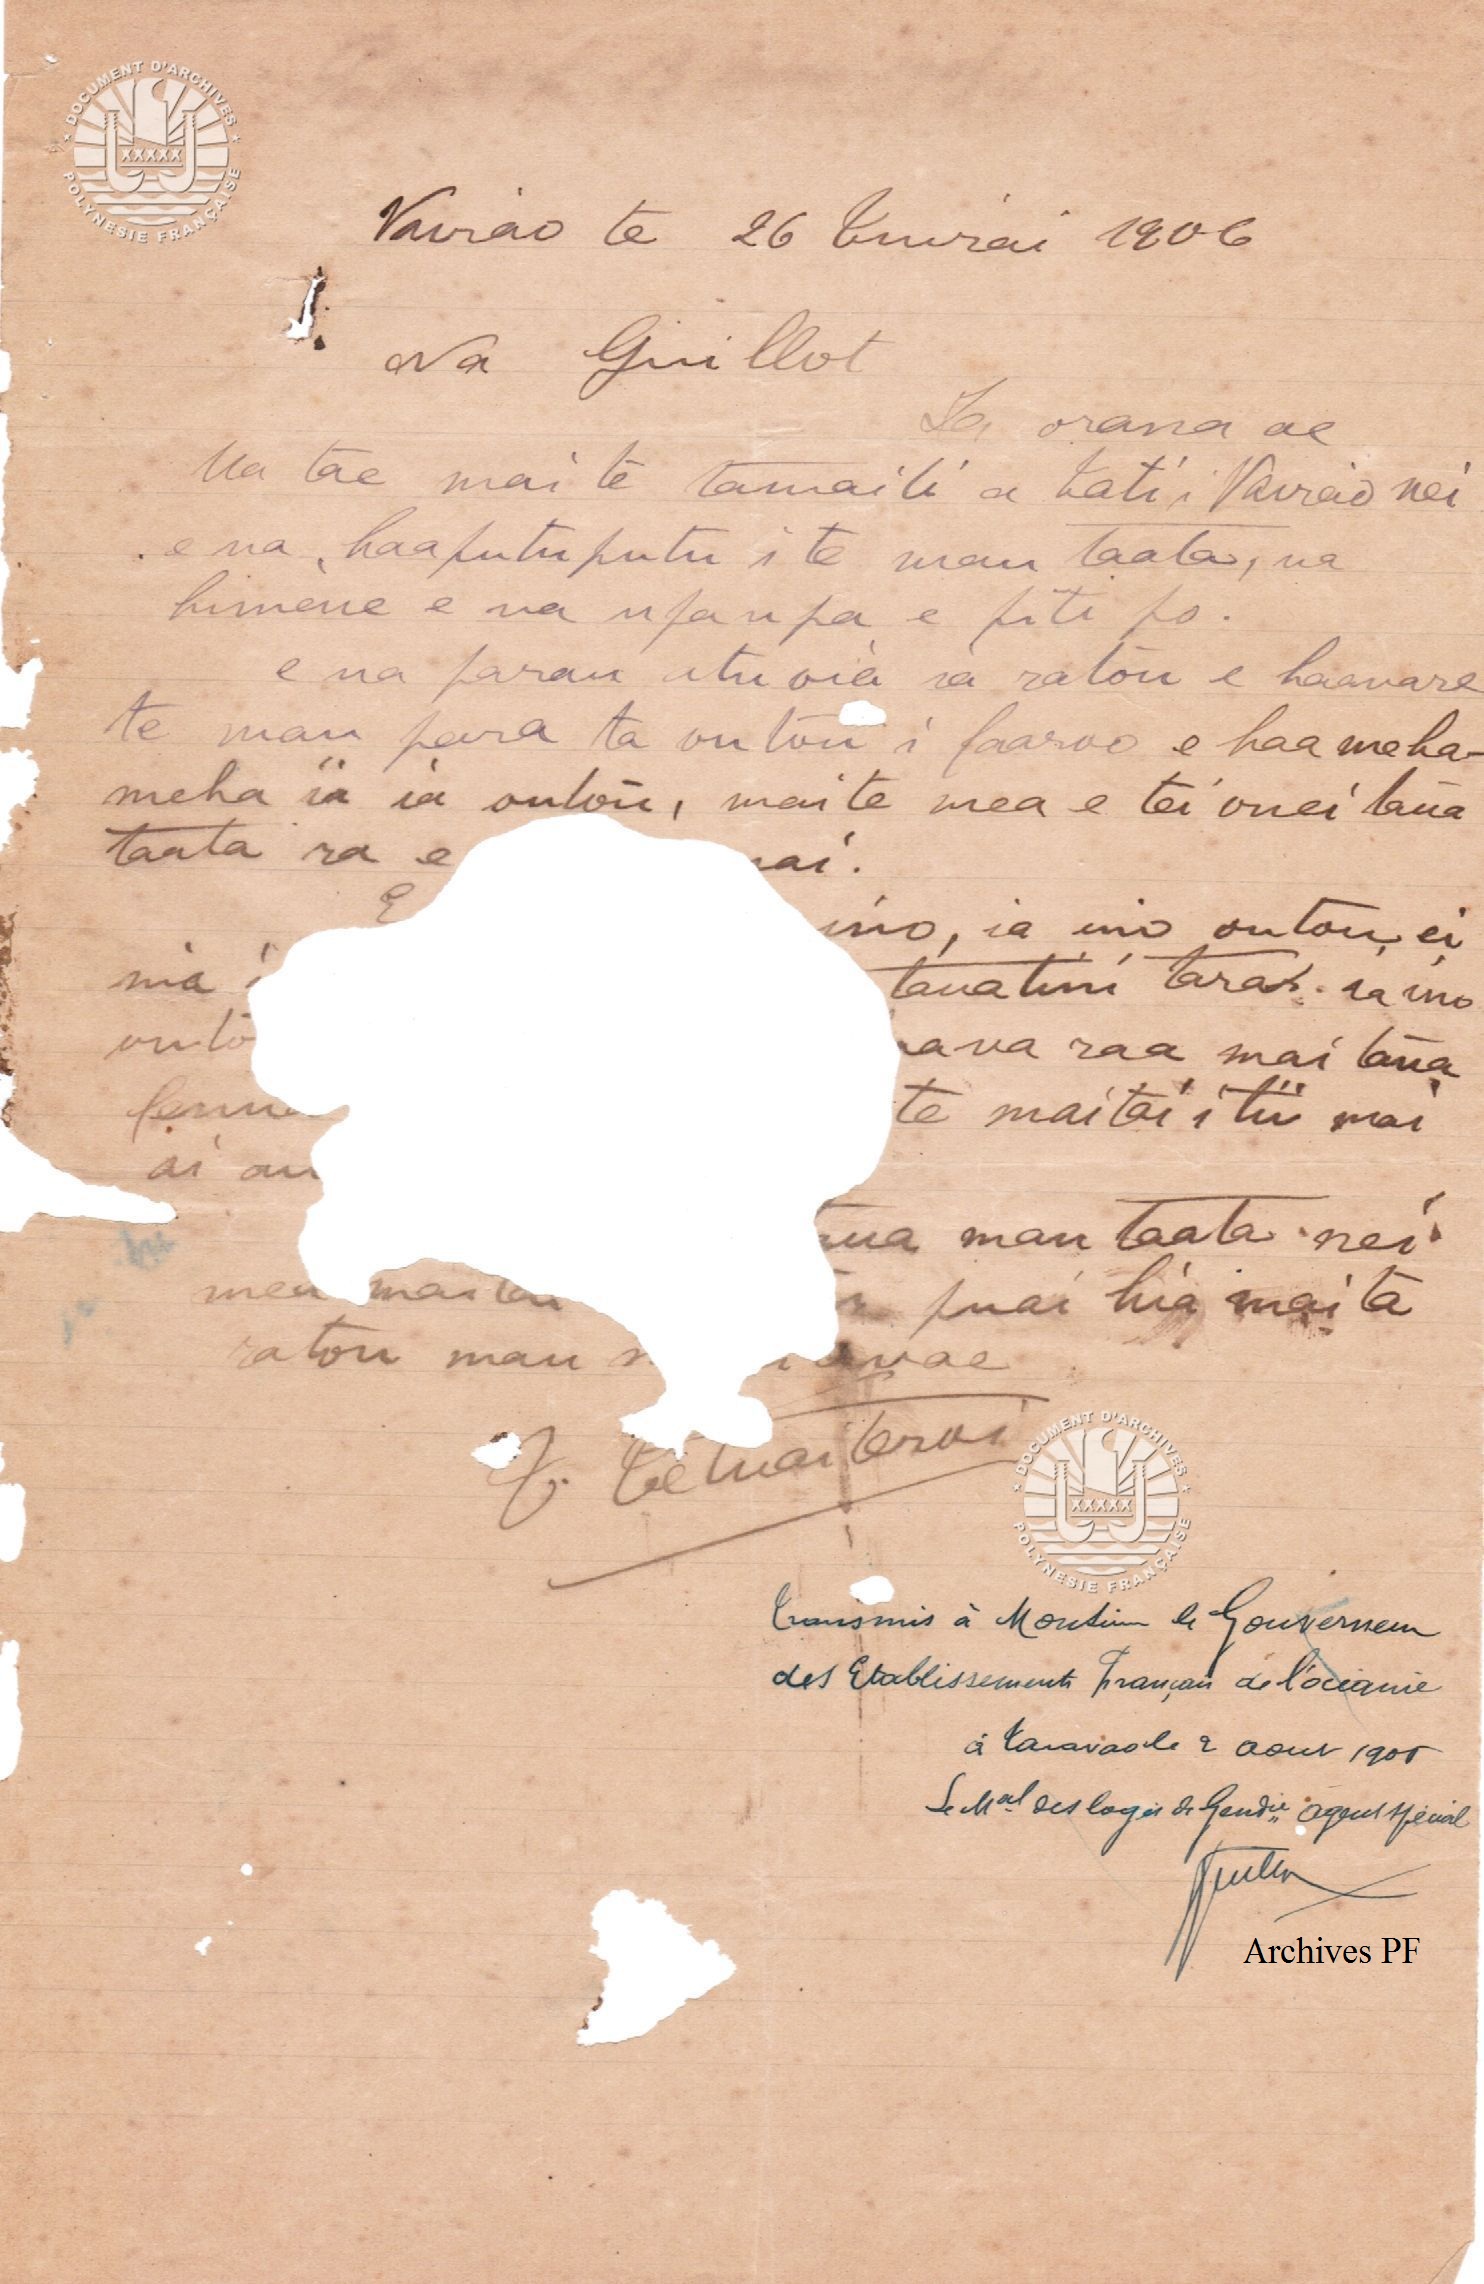 DOCUMENT D'ARCHIVES
POLYNESIE FRANÇAISE
Vairao te 26 Tiurai 1906
Na Guillot
Ia orana oe
Ua tae mai te tamaiti a Tati i Vairao nei
e ua haaputuputu i te mau taata, ua
himene e ua upaupa e piti po.
e ua parau atu oia ia ratou e haavare
te mau para ta outou i faaroo e haameha-
meha ïa ia outou, maite mea e tei onei taua
taata ra e mai.
E ino, ia ino outou, ei
nia i tauatini tara. ia ino
outo ava raa mai taua
fenua te maitai i tii mai
ai au
taua mau taata nei
mea maitai puai hia mai ta
ratou mau avae
T. Tetuaiteroi
Transmis à Monsieur le Gouverneur
des Etablissements Français de l'océanie
à Taravao le 2 aout 1906
Le Mal des logis de Gendie agent spécial
DOCUMENT D'ARCHIVES
POLYNESIE FRANÇAISE
Archives PF